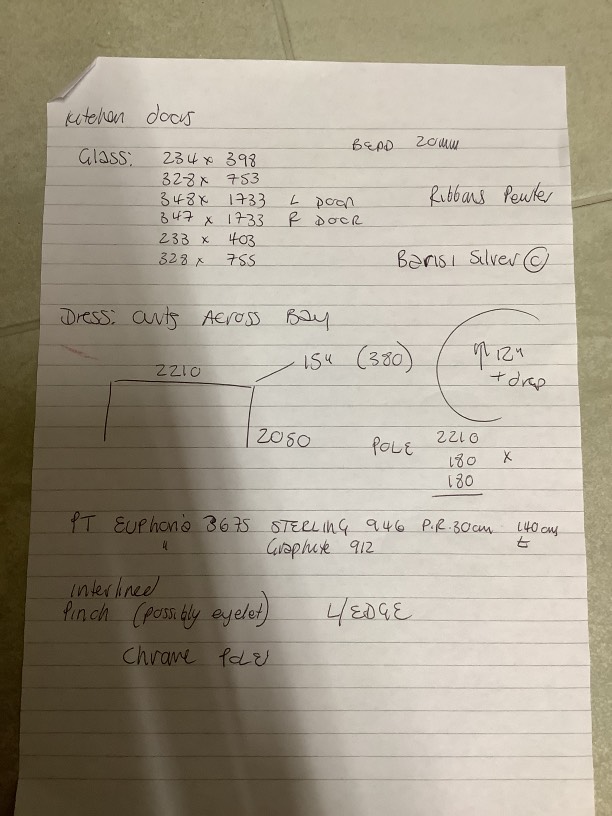 Kitchen doors
BEAD 20mm
Glass: 234 x 398
328 x 753
348 x 1733 L DOOR
Ribbons Pewter
347 x 1733 R DOOR
233 x 403
328 x 755
Silver ©
Dress: Curts ACROSS BAY
2210
15" (380)
12"
+ drop
2050
POLE 2210
180 x
180
PT Euphoria 3675 STERLING 946 P.R. 30cm 140cms
" Graphite 912
t
interlined
Pinch (possibly eyelet) L/EDGE
Chrome POLE